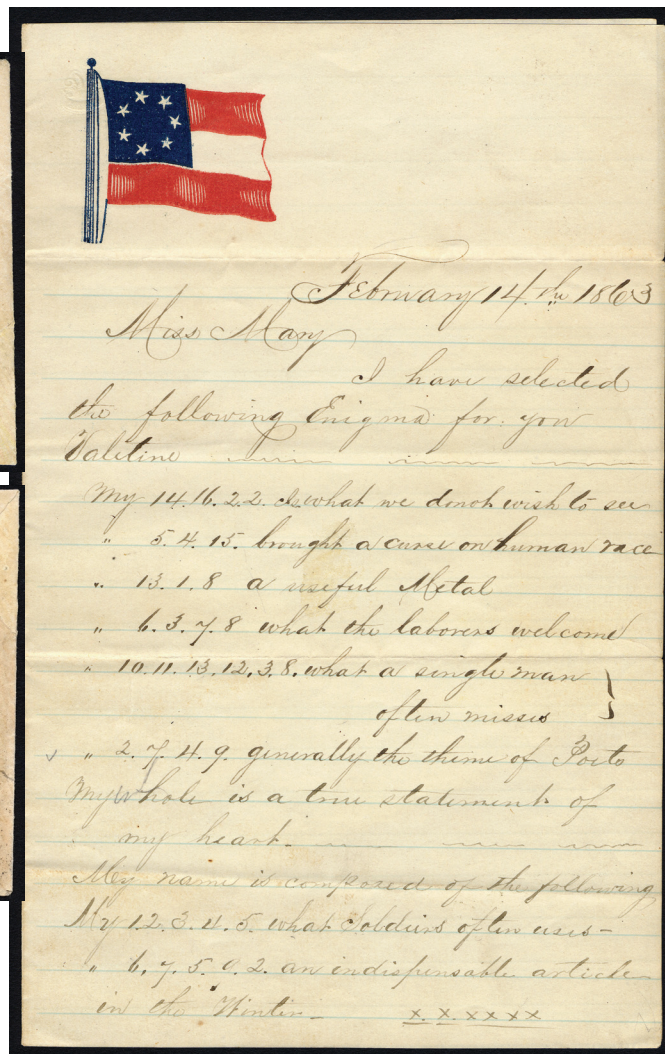 February 14.th 1863
Miss Mary
I have selected
the following Enigma for your
Valetine
My 14.16.2.2. is what we do not wish to see
" 5.4.15. brought a curse on human race
" 13.1.8 a useful Metal
" 6.3.7.8 what the laborers welcome
" 10.11.13.12.3.8. what a single man
often misses
" 2.7.4.9. generally the theme of Poets
My whole is a true statement of
my heart.
My name is composed of the following
My 1.2.3.4.5. what Soldiers often uses -
" 6.7.5.9.2. an indispensable article
in the Winter - x.x.xxxxx